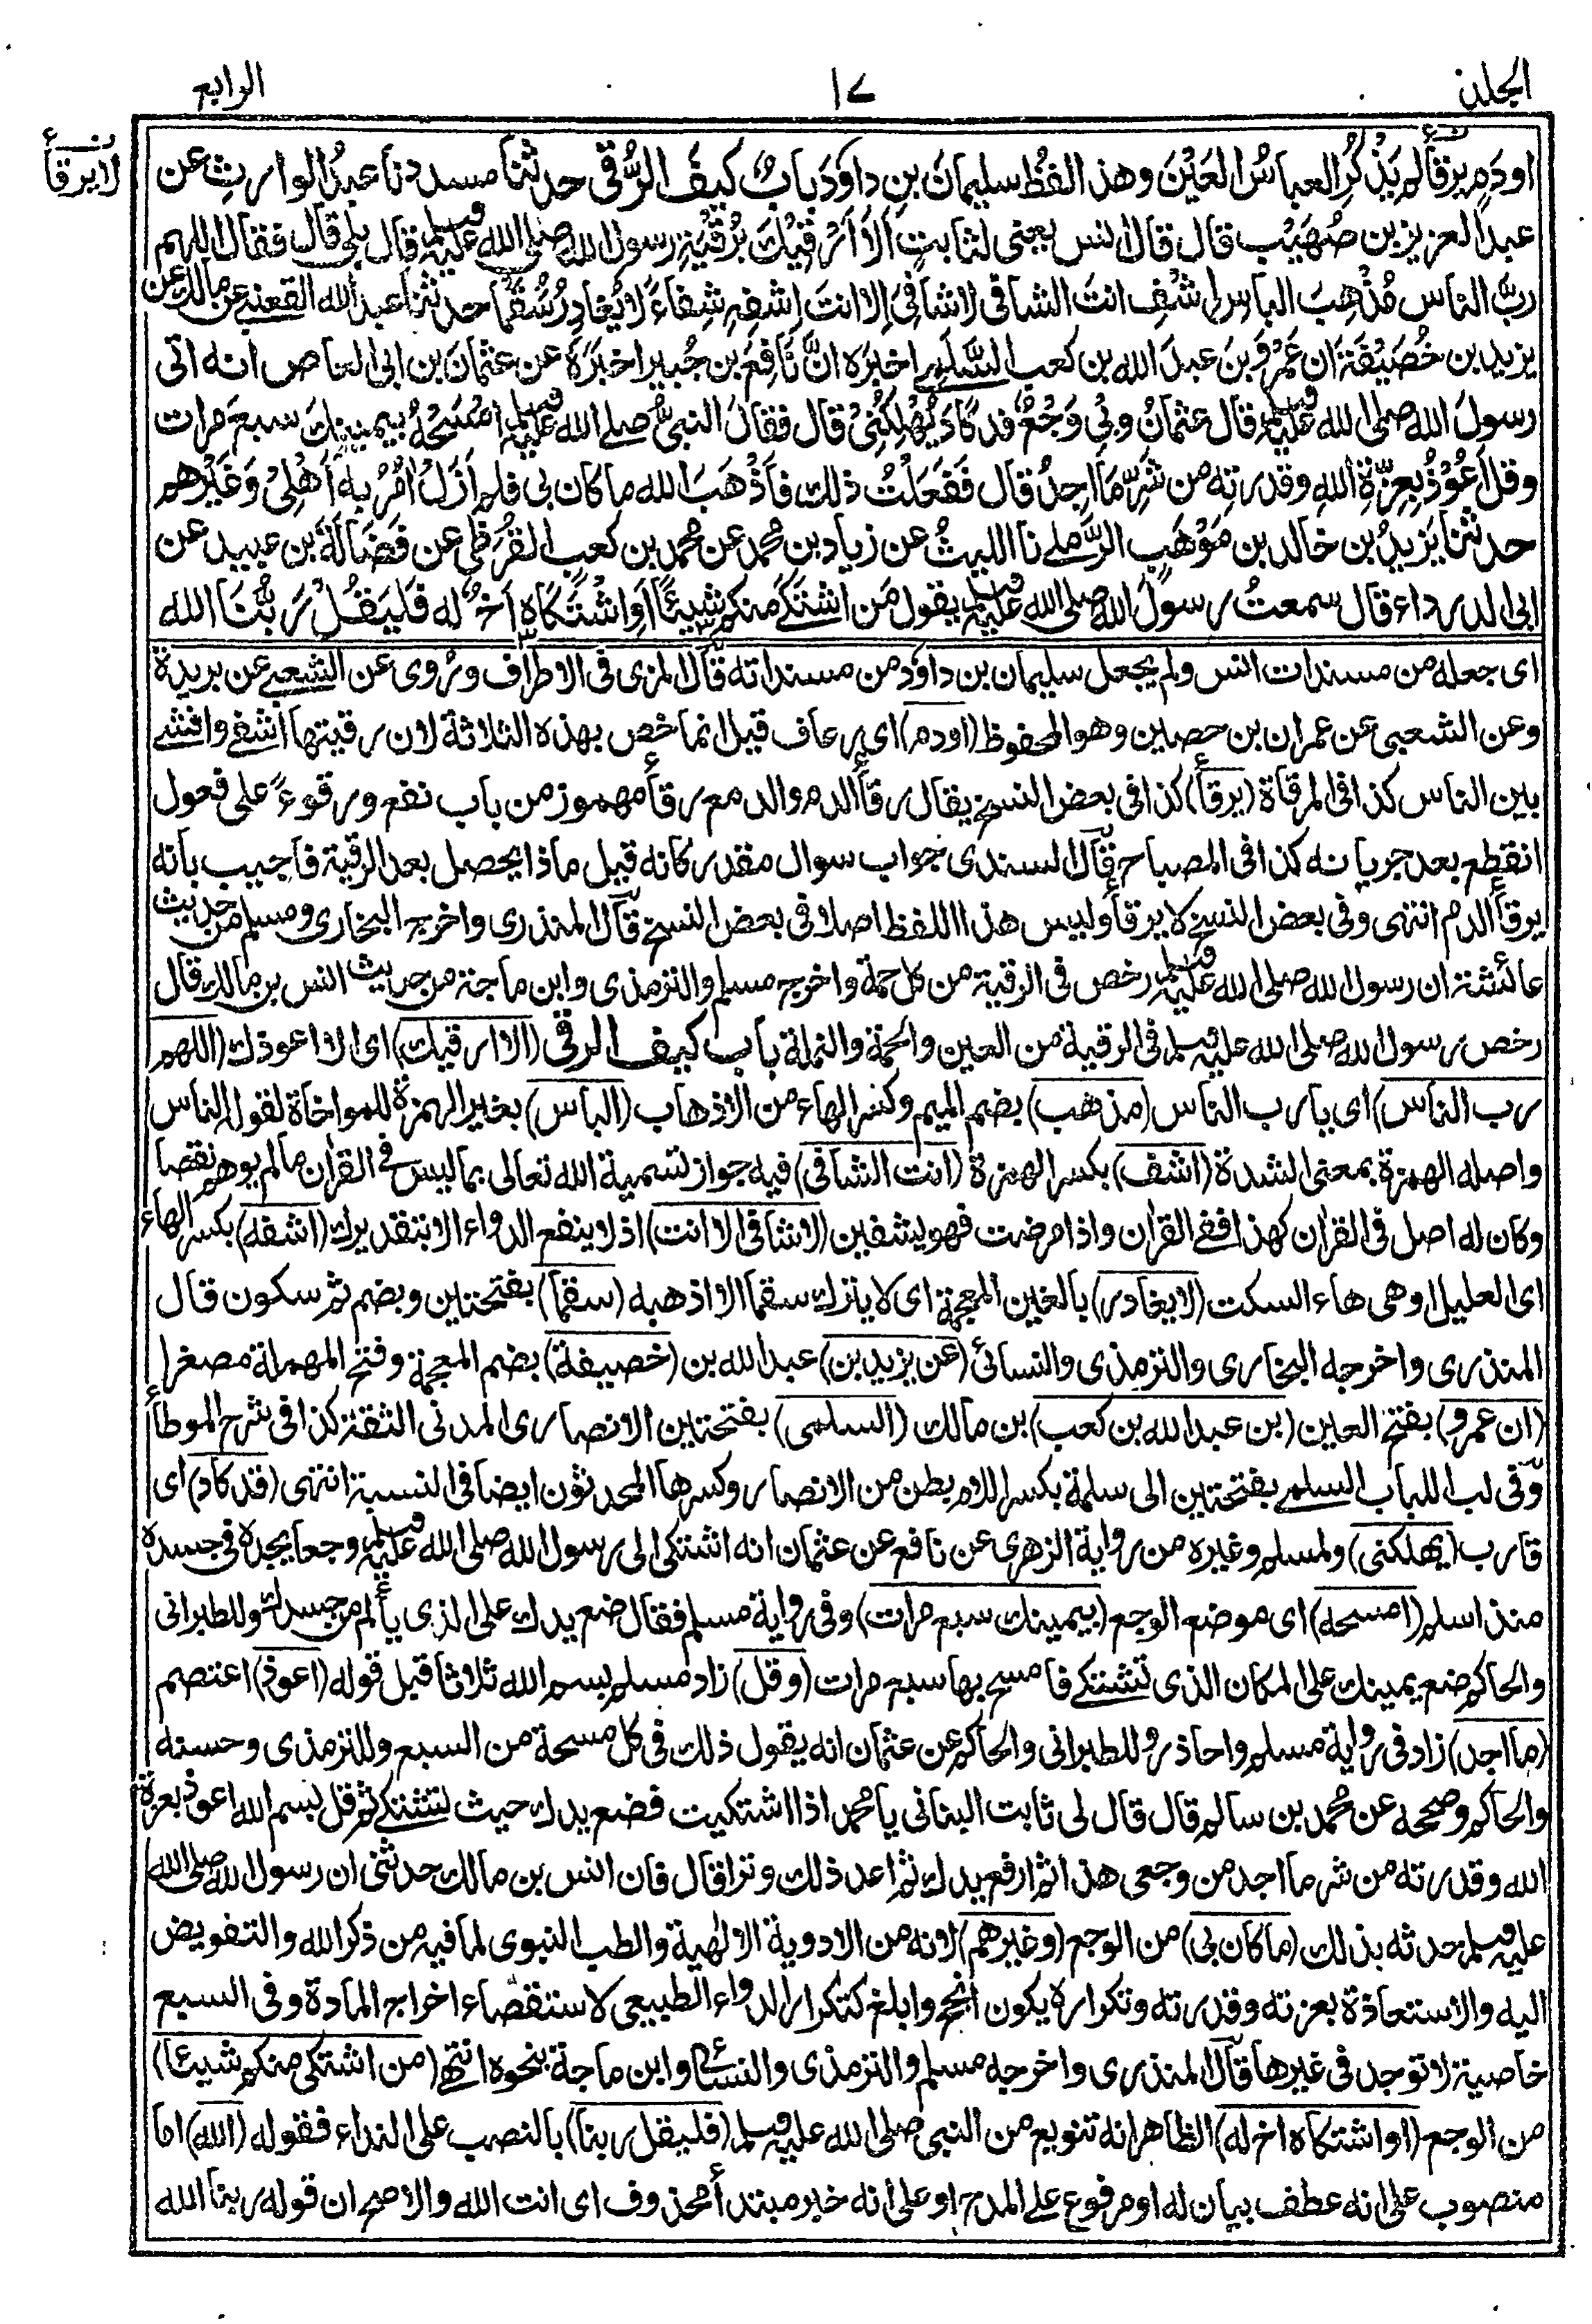 الجلد
١٧
الرابع
لا يرقأ
او دَمٍ يرقأ لم يَذْكُرِ العباسُ العَيْنَ وهذا لفظُ سليمانَ بنِ داوٗدَ بابٌ كيفَ الرُّقى حدثنا مسدد نا عبدُ الوارثِ عن
عبد العزيز بن صُهَيْب قال قال انس يعنى لثابتٍ اَلاَ اَرْقِيْكَ بِرُقْيَةِ رسول الله صلى الله عليه وسلم قال بلى قال فقال اللهم
ربَّ الناس مُذْهِبَ الباسِ اِشفِ انتَ الشافى لا شافِىَ اِلا انتَ اِشفِهِ شِفاءً لا يُغادِرُ سُقمًا حدثنا عبد الله القعنبى عن مالك عن
يزيد بن خُصَيْفَةَ ان عَمْرَو بنَ عبدِ الله بن كعب السَّلَمِى اخبَرَه انَّ نَافِعَ بن جُبير اخبَرَهٗ عن عثمانَ بن ابى العاص انه اتى
رسولَ الله صلى الله عليه وسلم قال عثمانُ وبِىْ وَجْعٌ قد كَادَ يُهْلِكُنِىْ قال فقالَ النبىُّ صلى الله عليه وسلم امْسَحْهُ بِيمينِكَ سبعَ مرات
وقل اَعُوْذُ بِعِزَّةِ اللهِ وقدرتِهٖ من شَرِّ مَا اَجِدُ قال فَفَعَلْتُ ذلك فَاَذْهَبَ الله ما كان بى فلم اَزَلْ اٰمُرُ بِهٖ اَهْلِىْ وَغَيْرَهم
حدثنا يَزيدُ بن خالد بن مَوْهَبٍ الرَّملى نا الليثُ عن زياد بن محمد عن محمد بن كعبٍ القُرَظى عن فَضَالَةَ بن عبيد عن
ابى الدرداء قال سمعتُ رسولَ الله صلى الله عليه وسلم يقول مَن اشتكىٰ منكم شيئًا اَوِ اشْتَكَاه اَخٌ له فَليَقُلْ رَبُّنَا الله
اى جعله من مسندات انس ولم يجعل سليمان بن داوٗد من مسنداته قال المزى فى الاطراف وروى عن الشعبى عن بريدة
وعن الشعبى عن عمران بن حصين وهو المحفوظ (او دم) اى رعاف قيل انما خص بهذه الثلاثة لان رقيتها اشفى وافشى
بين الناس كذا فى المرقاة (يرقأ) كذا فى بعض النسخ يقال رقأ الدم والدمع رقأ مهموز من باب نفع ورقوءً على فعول
انقطع بعد جريانه كذا فى المصباح قال السندى جواب سوال مقدر كانه قيل ماذا يحصل بعد الرقية فاجيب بانه
يرقأ الدم انتهى وفى بعض النسخ لا يرقأ وليس هذا اللفظ اصلا فى بعض النسخ قال المنذرى واخرجه البخارى ومسلم من حديث
عائشة ان رسول الله صلى الله عليه وسلم رخص فى الرقية من كل حمة واخرجه مسلم والترمذى وابن ماجة من حديث انس بن مالك قال
رخص رسول الله صلى الله عليه وسلم فى الرقية من العين والحمة والنملة باب كيف الرقى (الا ارقيك) اى الا اعوذك (اللهم
رب الناس) اى يا رب الناس (مذهب) بضم الميم وكسر الهاء من الاذهاب (الباس) بغير الهمزة للمواخاة لقوله الناس
واصله الهمزة بمعنى الشدة (اشف) بكسر الهمزة (انت الشافى) فيه جواز تسمية الله تعالى بما ليس فى القرآن ما لم يوهم نقصا
وكان له اصل فى القرآن كهذا ففى القرآن واذا مرضت فهو يشفين (لا شافى الا انت) اذ لا ينفع الدواء الا بتقديرك (اشفه) بكسر الهاء
اى العليل او هى هاء السكت (لا يغادر) بالغين المعجمة اى لا يترك سقما الا اذهبه (سقما) بفتحتين وبضم ثم سكون قال
المنذرى واخرجه البخارى والترمذى والنسائى (عن يزيد بن) عبد الله بن (خصيفة) بضم المعجمة وفتح المهملة مصغرا
(ان عمرو) بفتح العين (بن عبد الله بن كعب) بن مالك (السلمى) بفتحتين الانصارى المدنى الثقة كذا فى شرح الموطأ
وفى لب اللباب السلمى بفتحتين الى سلمة بكسر اللام بطن من الانصار وكسرها المحدثون ايضا فى النسبة انتهى (قد كاد) اى
قارب (يهلكنى) ولمسلم وغيره من رواية الزهرى عن نافع عن عثمان انه اشتكى الى رسول الله صلى الله عليه وسلم وجعا يجده فى جسده
منذ اسلم (امسحه) اى موضع الوجع (بيمينك سبع مرات) وفى رواية مسلم فقال ضع يدك على الذى يألم من جسدك وللطبرانى
والحاكم ضع يمينك على المكان الذى تشتكى فامسح بها سبع مرات (وقل) زاد مسلم بسم الله ثلاثا قبل قوله (اعوذ) اعتصم
(ما اجد) زاد فى رواية مسلم واحاذر وللطبرانى والحاكم عن عثمان انه يقول ذلك فى كل مسحة من السبع وللترمذى وحسنه
والحاكم وصححه عن محمد بن سالم قال قال لى ثابت البنانى يا محمد اذا اشتكيت فضع يدك حيث تشتكى ثم قل بسم الله اعوذ بعزة
الله وقدرته من شر ما اجد من وجعى هذا ثم ارفع يدك ثم اعد ذلك وترا قال فان انس بن مالك حدثنى ان رسول الله صلى الله
عليه وسلم حدثه بذلك (ما كان بى) من الوجع (وغيرهم) لانه من الادوية الالٰهية والطب النبوى لما فيه من ذكر الله والتفويض
اليه والاستعاذة بعزته وقدرته وتكراره يكون انجح وابلغ كتكرار الدواء الطبيعى لاستقصاء اخراج المادة وفى السبع
خاصية لا توجد فى غيرها قال المنذرى واخرجه مسلم والترمذى والنسائى وابن ماجة بنحوه انتهى (من اشتكى منكم شيئا)
من الوجع (او اشتكاه اخ له) الظاهر انه تنويع من النبى صلى الله عليه وسلم (فليقل ربنا) بالنصب على النداء فقوله (الله) اما
منصوب على انه عطف بيان له او مرفوع على المدح او على انه خبر مبتدأ محذوف اى انت الله والاصح ان قوله ربنا الله